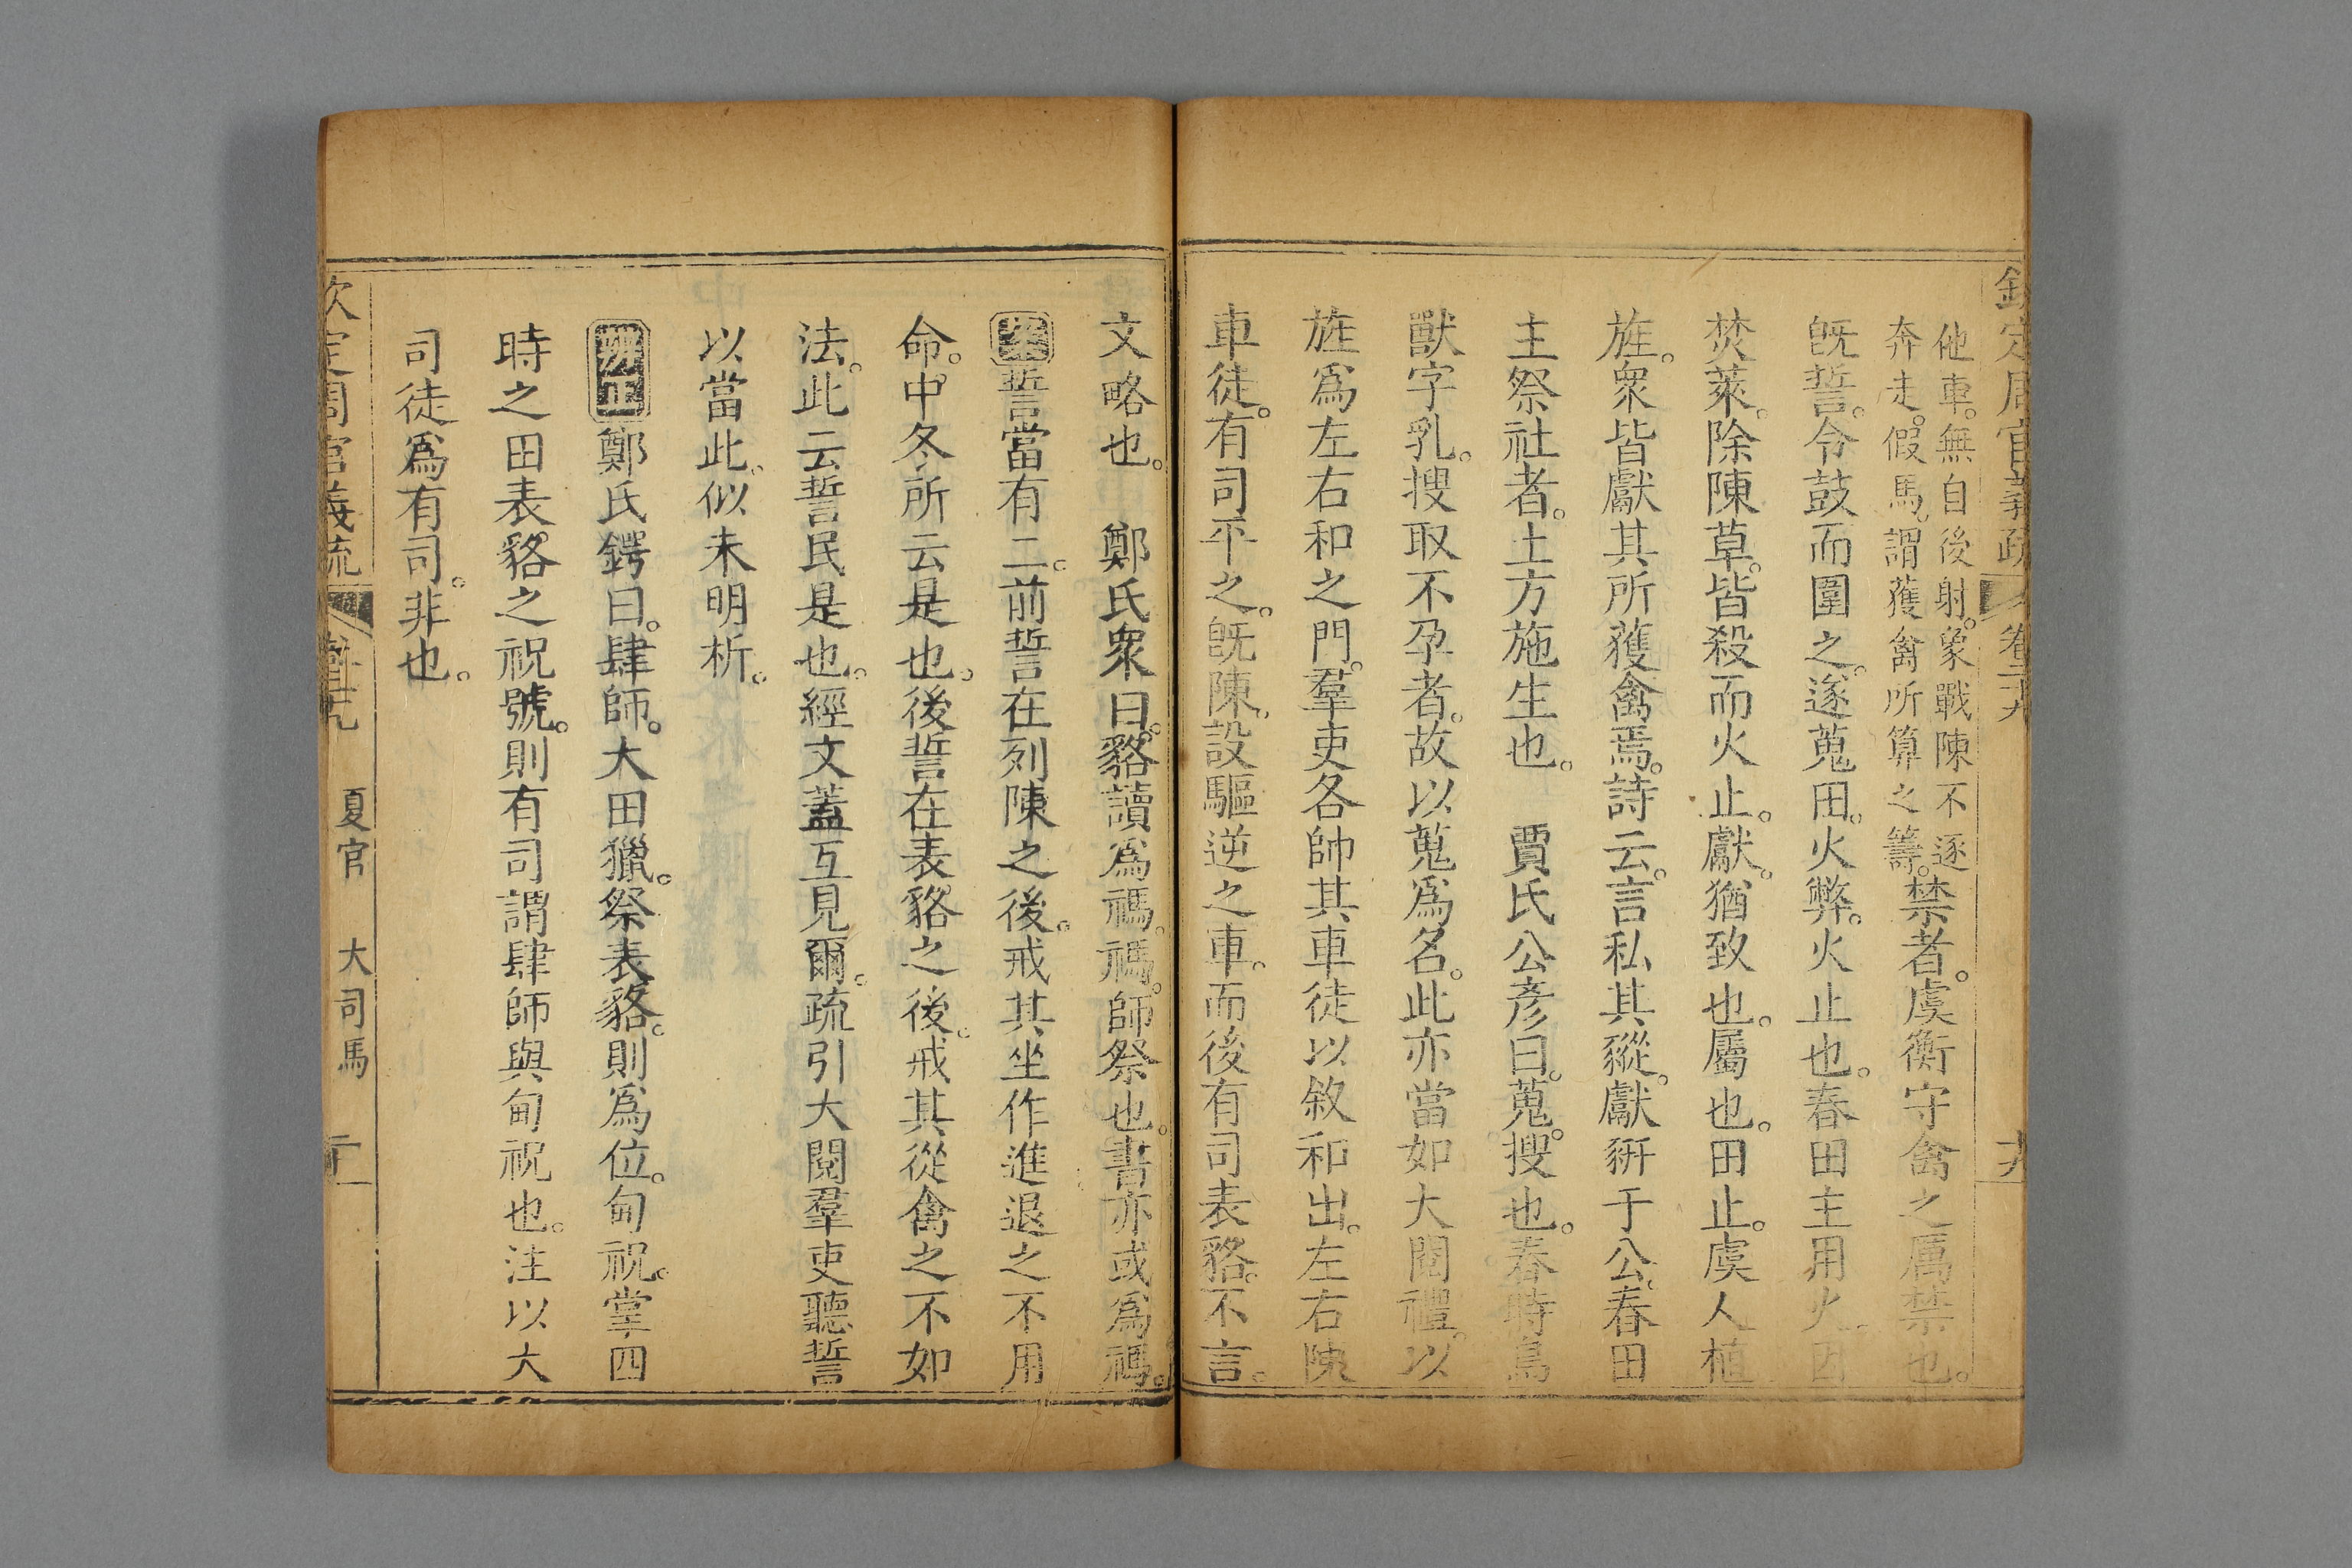 欽定周官義疏 卷二十九 十九
他車。無自後射。象戰陳不逐
奔走。假馬。謂獲禽所算之籌。禁者。虞衡守禽之厲禁也。
既誓。令鼓而圍之。遂蒐田。火弊。火止也。春田主用火。因
焚萊。除陳草。皆殺而火止。獻。猶致也。屬也。田止。虞人植
旌。衆皆獻其所獲禽焉。詩云。言私其豵。獻豜于公。春田
主祭社者。土方施生也。 賈氏公彦曰。蒐。搜也。春時鳥
獸字乳。搜取不孕者。故以蒐爲名。此亦當如大閱禮。以
旌爲左右和之門。羣吏各帥其車徒以敘和出。左右陳
車徒。有司平之。既陳。設驅逆之車。而後有司表貉。不言。
文略也。 鄭氏衆曰。貉讀爲禡。禡。師祭也。書亦或爲禡。
案誓當有二。前誓在列陳之後。戒其坐作進退之不用
命。中冬所云是也。後誓在表貉之後。戒其從禽之不如
法。此云誓民是也。經文蓋互見爾。疏引大閱羣吏聽誓
以當此。似未明析。
辨正鄭氏鍔曰。肆師。大田獵。祭表貉。則爲位。甸祝。掌四
時之田表貉之祝號。則有司謂肆師與甸祝也。注以大
司徒爲有司。非也。
欽定周官義疏 卷二十九 夏官 大司馬 二十